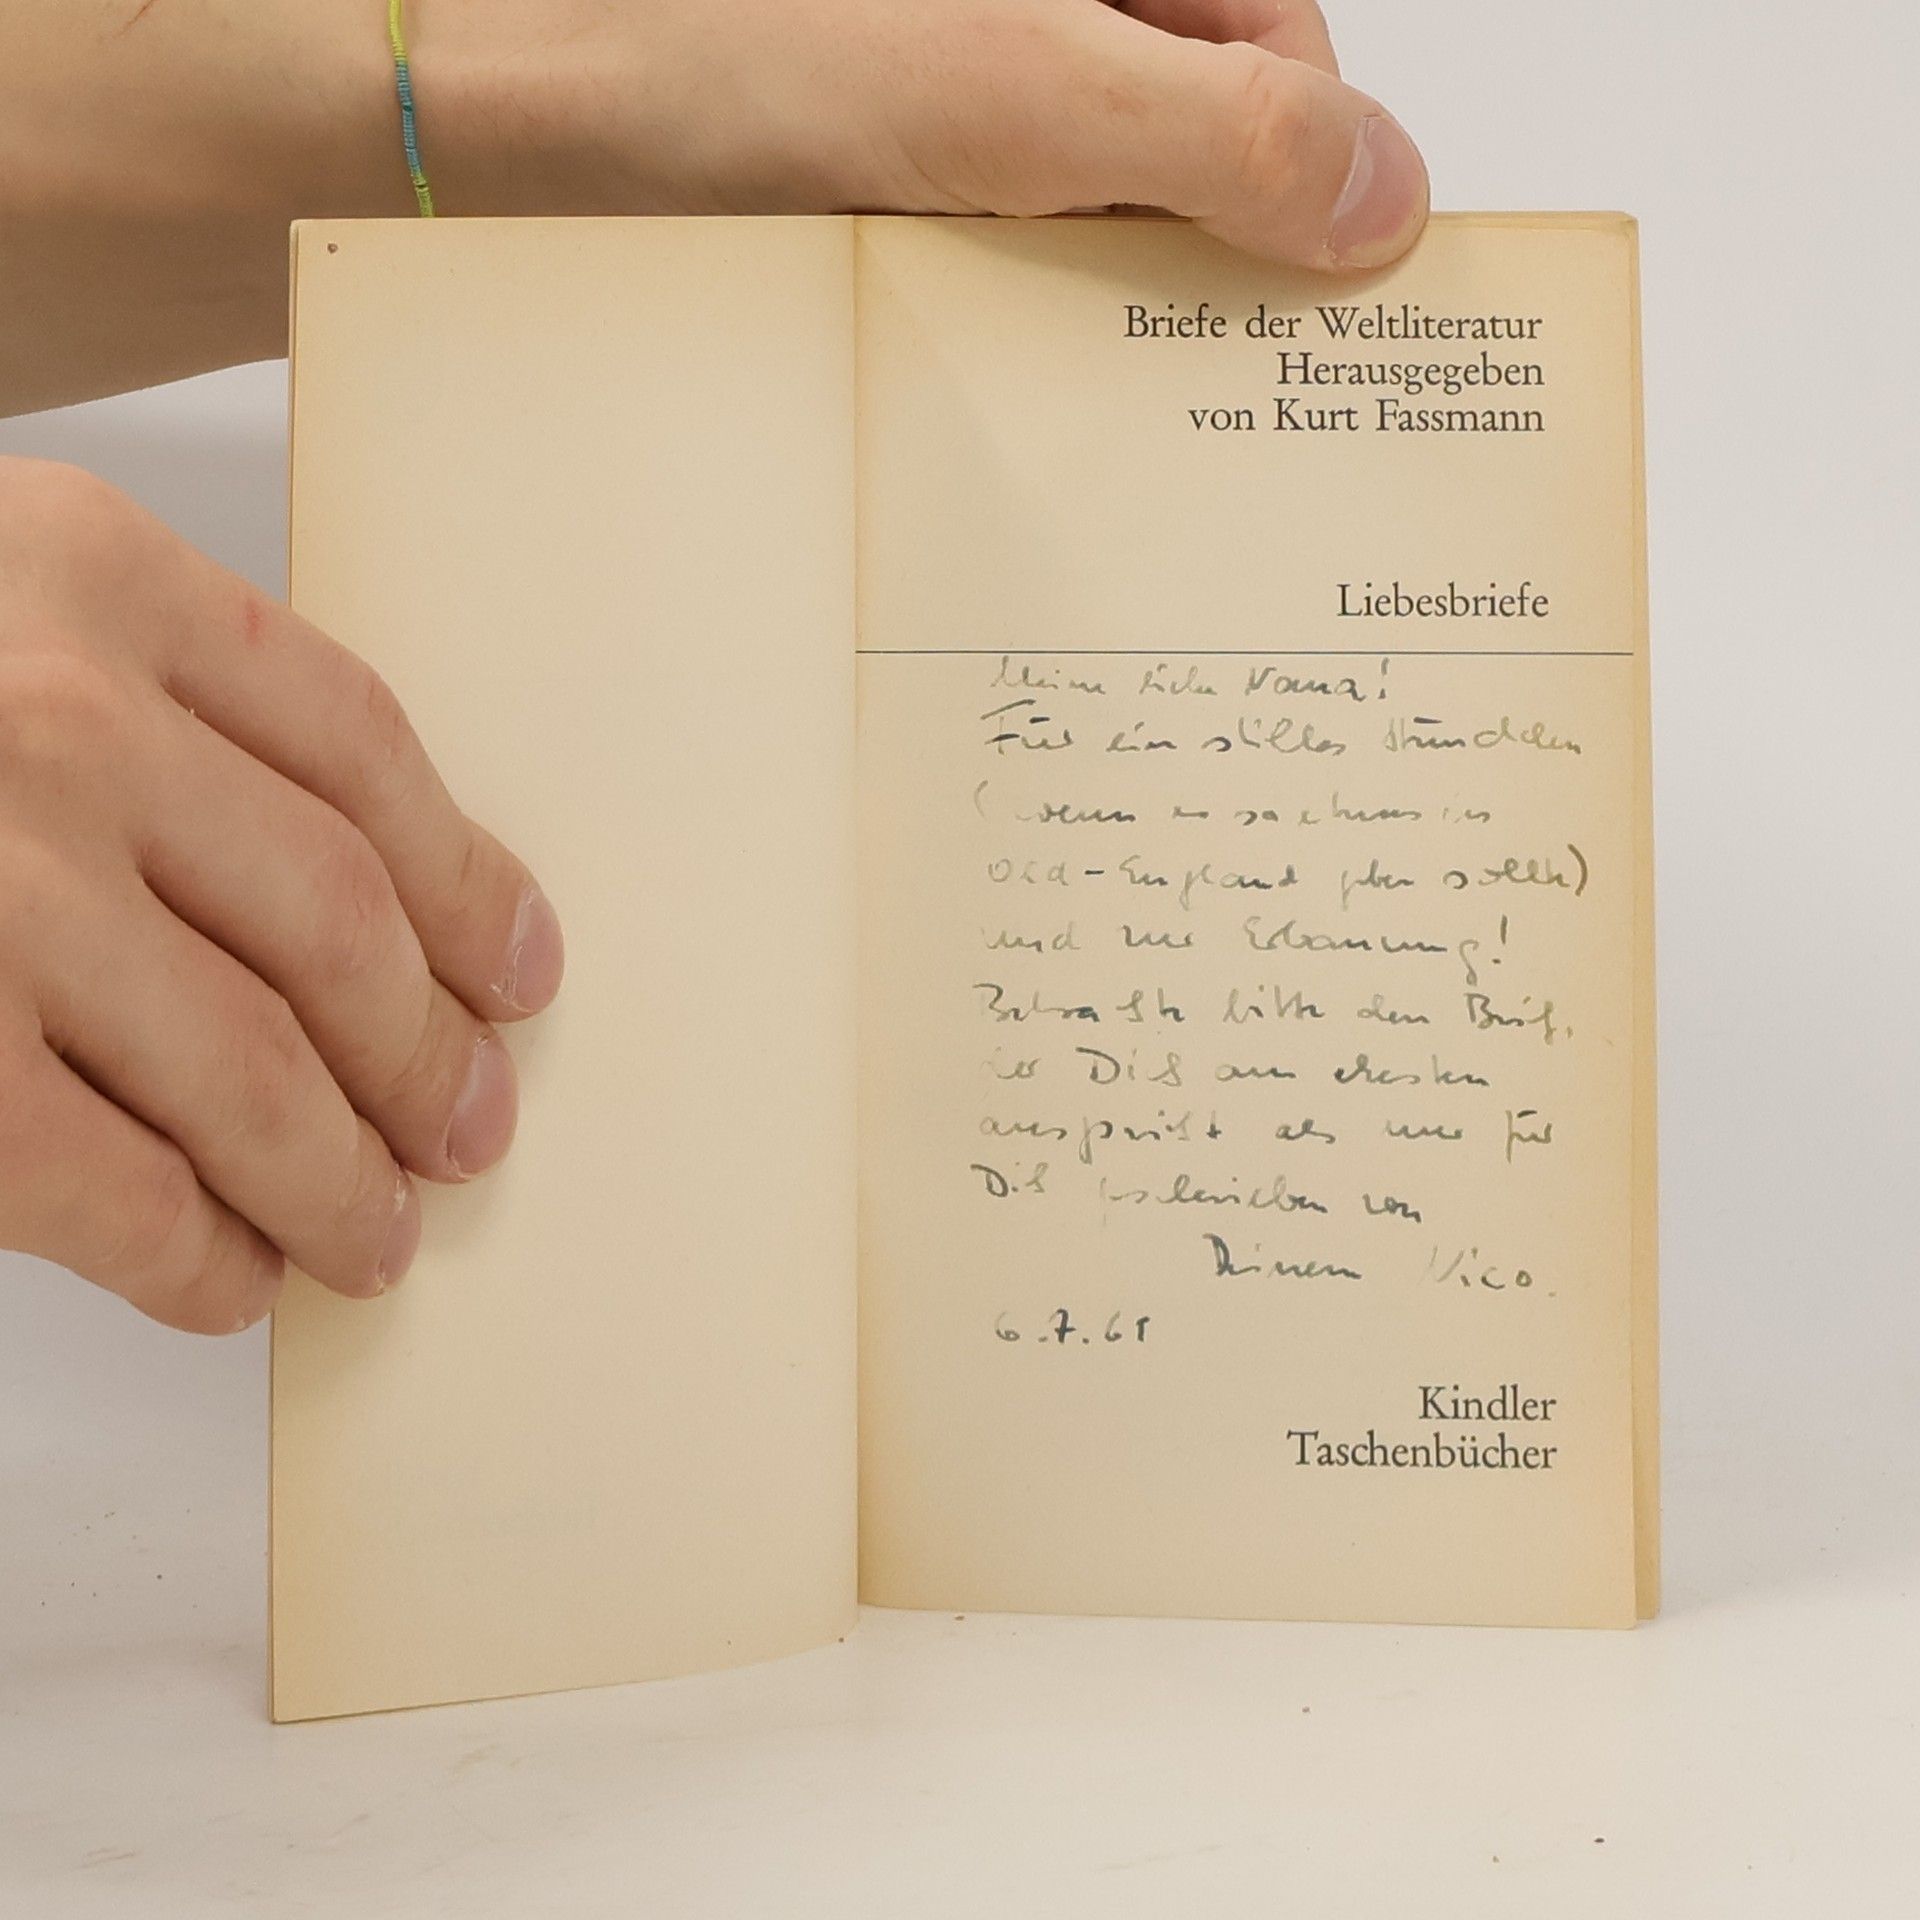 Briefe der Weltliteratur
Herausgegeben
von Kurt Fassmann
Liebesbriefe
Meine liebe Nana!
Für ein stilles Stündchen
( wenn es so etwas in
Old-England geben sollte)
und zur Erbauung!
Betrachte bitte den Brief,
der Dich am ehesten
anspricht als nur für
Dich geschrieben von
Deinem Nico.
6.7.65
Kindler
Taschenbücher